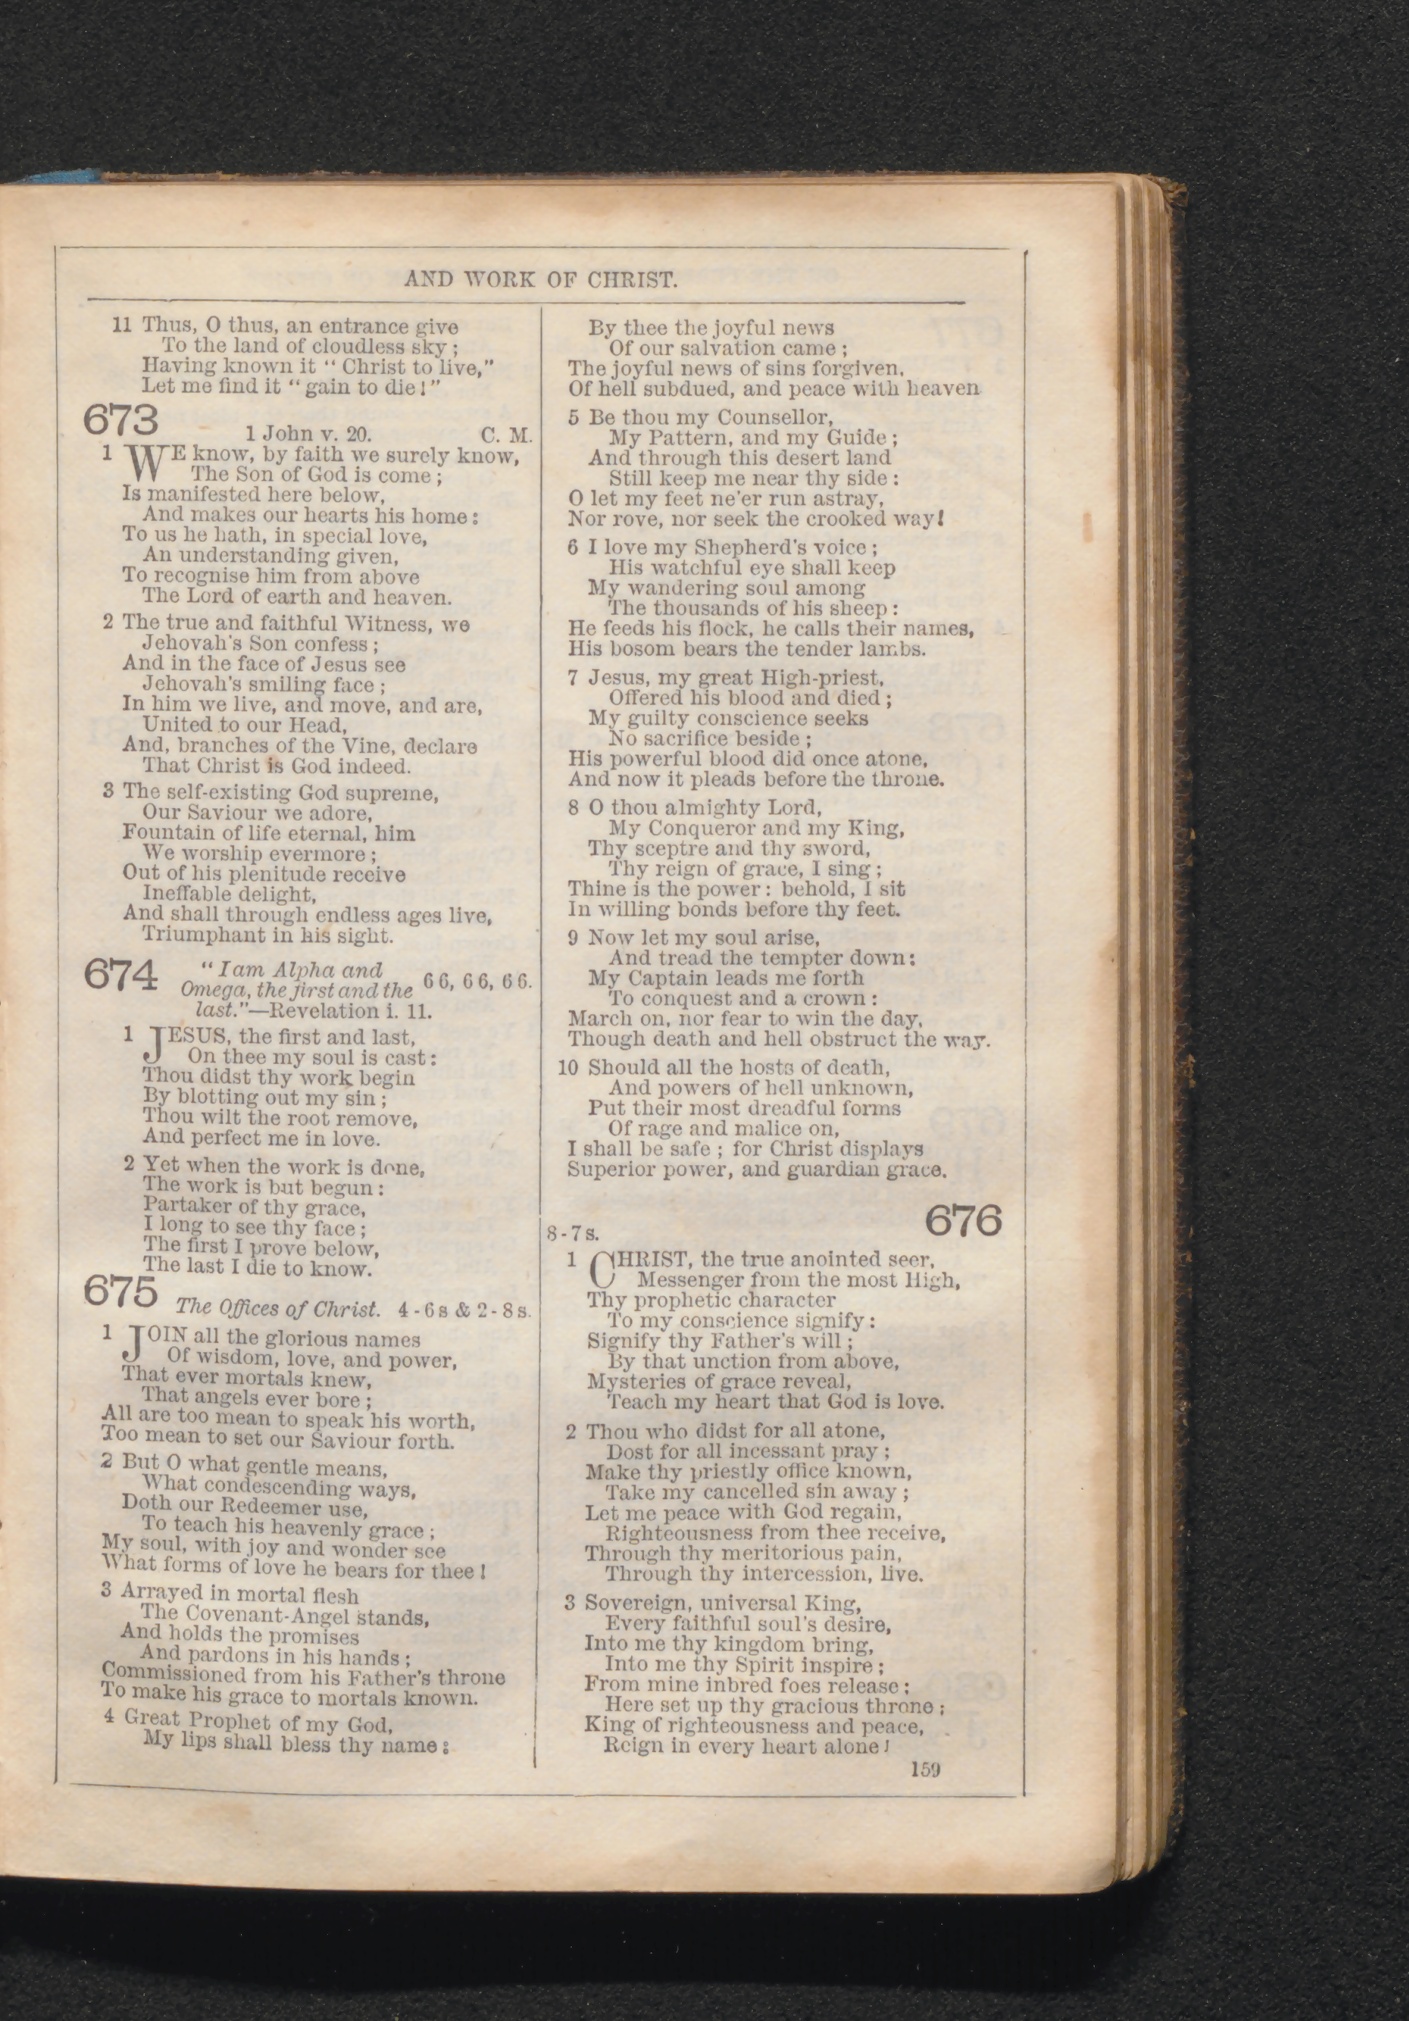 AND WORK OF CHRIST.
11 Thus, O thus, an entrance give
To the land of cloudless sky;
Having known it "Christ to live,"
Let me find it "gain to die!"
673
1 John v. 20. C. M.
1 WE know, by faith we surely know,
The Son of God is come;
Is manifested here below,
And makes our hearts his home:
To us he hath, in special love,
An understanding given,
To recognise him from above
The Lord of earth and heaven.
2 The true and faithful Witness, we
Jehovah's Son confess;
And in the face of Jesus see
Jehovah's smiling face;
In him we live, and move, and are,
United to our Head,
And, branches of the Vine, declare
That Christ is God indeed.
3 The self-existing God supreme,
Our Saviour we adore,
Fountain of life eternal, him
We worship evermore;
Out of his plenitude receive
Ineffable delight,
And shall through endless ages live,
Triumphant in his sight.
674 "I am Alpha and
Omega, the first and the 6 6, 6 6, 6 6.
last."—Revelation i. 11.
1 JESUS, the first and last,
On thee my soul is cast:
Thou didst thy work begin
By blotting out my sin;
Thou wilt the root remove,
And perfect me in love.
2 Yet when the work is done,
The work is but begun:
Partaker of thy grace,
I long to see thy face;
The first I prove below,
The last I die to know.
675
The Offices of Christ. 4-6s & 2-8s.
1 JOIN all the glorious names
Of wisdom, love, and power,
That ever mortals knew,
That angels ever bore;
All are too mean to speak his worth,
Too mean to set our Saviour forth.
2 But O what gentle means,
What condescending ways,
Doth our Redeemer use,
To teach his heavenly grace;
My soul, with joy and wonder see
What forms of love he bears for thee!
3 Arrayed in mortal flesh
The Covenant-Angel stands,
And holds the promises
And pardons in his hands;
Commissioned from his Father's throne
To make his grace to mortals known.
4 Great Prophet of my God,
My lips shall bless thy name:
By thee the joyful news
Of our salvation came;
The joyful news of sins forgiven,
Of hell subdued, and peace with heaven
5 Be thou my Counsellor,
My Pattern, and my Guide;
And through this desert land
Still keep me near thy side:
O let my feet ne'er run astray,
Nor rove, nor seek the crooked way!
6 I love my Shepherd's voice;
His watchful eye shall keep
My wandering soul among
The thousands of his sheep:
He feeds his flock, he calls their names,
His bosom bears the tender lambs.
7 Jesus, my great High-priest,
Offered his blood and died;
My guilty conscience seeks
No sacrifice beside;
His powerful blood did once atone,
And now it pleads before the throne.
8 O thou almighty Lord,
My Conqueror and my King,
Thy sceptre and thy sword,
Thy reign of grace, I sing;
Thine is the power: behold, I sit
In willing bonds before thy feet.
9 Now let my soul arise,
And tread the tempter down:
My Captain leads me forth
To conquest and a crown:
March on, nor fear to win the day,
Though death and hell obstruct the way.
10 Should all the hosts of death,
And powers of hell unknown,
Put their most dreadful forms
Of rage and malice on,
I shall be safe; for Christ displays
Superior power, and guardian grace.
676
8-7s.
1 CHRIST, the true anointed seer,
Messenger from the most High,
Thy prophetic character
To my conscience signify:
Signify thy Father's will;
By that unction from above,
Mysteries of grace reveal,
Teach my heart that God is love.
2 Thou who didst for all atone,
Dost for all incessant pray;
Make thy priestly office known,
Take my cancelled sin away;
Let me peace with God regain,
Righteousness from thee receive,
Through thy meritorious pain,
Through thy intercession, live.
3 Sovereign, universal King,
Every faithful soul's desire,
Into me thy kingdom bring,
Into me thy Spirit inspire;
From mine inbred foes release:
Here set up thy gracious throne;
King of righteousness and peace,
Reign in every heart alone!
159